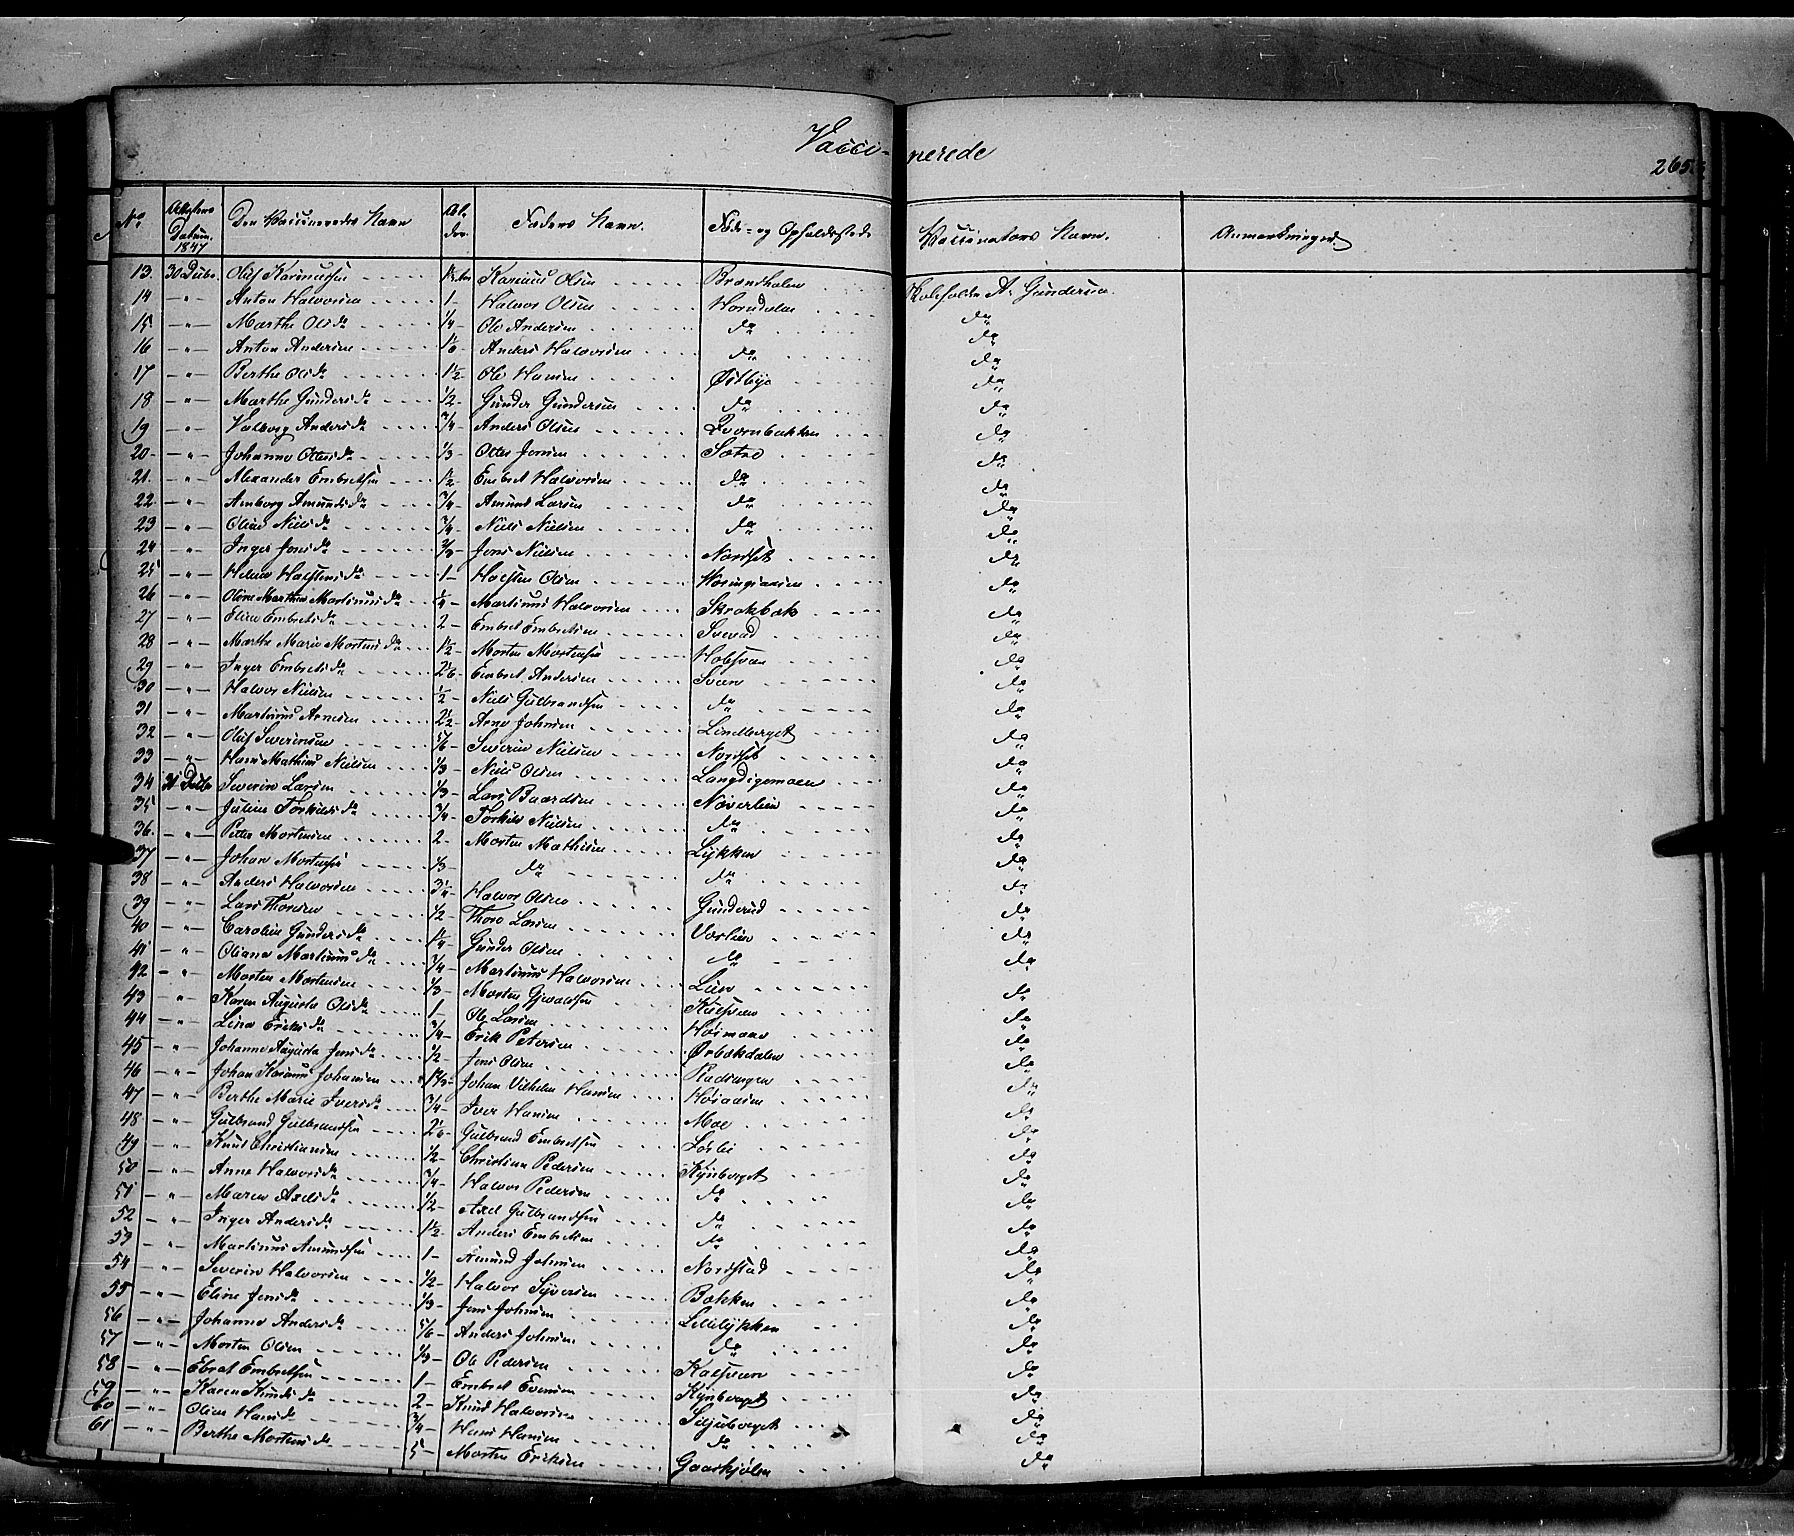 Vacci- nerede
265
No Attestens Datum. 1847 Den Vaccineredes Navn Al- der Faders Navn. Føde- og Opholdssted Vaccinators Navn. Anmærkninger
13. 30 Oluf Karinussen Karinus Olsen A. Gundersen.
14 -"- Anton Halvorsen 1- Halvor Olsen Horndalen do
15 -"- Marthe Olsdr 1/4- Ole Andersen do do
16 -"- Anton Andersen Anders Halvorsen do do
17 -"- Berthe Olsdr 1 1/2- Ole Hansen Østbye do
18 -"- Marthe Gundersdr 1/2- Gunder Gundersen do do
19 -"- Valborg Andersdr 3/4- Anders Olsen do
20- -"- Johanne Olsdr 1/3- Jensen Sætre do
21. -"- Alexander Embretsen 1 1/2- Embret Halvorsen do do
22 -"- Amborg Amundsdr 3/4- Amund Larsen do do
23 -"- Oline Nielsdr 3/4- Niels Nielsen do do
24 -"- Inger Jensdr 2/3- Jens Nielsen Nordset do
25 -"- Helene Halstensdr 1- Halsten Olsen do
26 -"- Oline Marthea Martinusdr 1/4- Martinus Halvorsen Skrakbæk do
27 -"- Eline Embretsdr 2- Embret Embretsen Sverud do
28 -"- Marthe Marie Mortensdr 1 1/2- Morten Mortensen do
29 -"- Inger Embretsdr 2 1/6- Embret Andersen Sveen do
30 -"- Halvor Nielsen 1/2- Niels Gulbrandsen do do
31 -"- Martinus Arnesen 2 1/2- Arne Johnsen Lindberget do
32 -"- Oluf Severinsen 5/6- Severin Nielsen Nordset do
33 -"- Hans Mathias Nielsen 1/3- Niels Olsen Langdigemoen do
34 31 Severin Larsen 1/3- Lars Baardsen Noverlien do
35 -"- Juline Torkildsdr 3/4- Torkild Nielsen do do
36. -"- Peter Mortensen 2- Morten Mathisen Lykken do
37 -"- Johan Mortensen 1/3 do do do
38 -"- Anders Halvorsen Halvor Olsen Gunderud do
39 -"- Lars Thoresen 1/2- Thore Larsen Vorlien do
40 -"- Caroline Gundersdr 1 1/4- Gunder Olsen do do
41 -"- Oliane Martinusdr 3/4- Martinus Halvorsen Lien do
42 -"- Morten Mortensen 1/3- Morten do
43 -"- Karen Augusta Olsdr 1- Ole Larsen do
44 -"- Lina Eriksdr 3/4- Erik Petersen Ørbækdalen do
45 -"- Johanne Augusta Jensdr 1/2- Jens Olsen do
46 -"- Johan Karinus Johansen Johan Vilhelm Hansen do
47 -"- Berthe Marie Iversdr 3/4- Iver Hansen Moe do
48 -"- Gulbrand Gulbrandsen 2 1/6- Gulbrand Embretsen do
49 -"- Knud Christiansen 1/2- Christian Pedersen Kynberget do
50 -"- Anne Halvorsdr 3/4- Halvor Pedersen do do
51 -"- Maren Axelsdr 1/2- Axel Gulbrandsen do do
52 -"- Inger Andersdr 1 1/2- Anders Embretsen do do
53 -"- Martinus Amundsen 1- Amund Johnsen Nordstad do
54 -"- Severin Halvorsen 1/2- Halvor Syversen Bakken do
55 -"- Eline Jensdr 1/3- Jens Johnsen Lillelykken do
56 -"- Johanne Andersdr 5/6- Anders Johnsen do do
57 -"- Morten Olsen 1/3- Ole Pedersen do
58 -"- Embretsen 1- Embret Evensen Kynberget do
59 -"- Karen Knudsdr 2- Knud Halvorsen Siljuberget do
60 -"- Oline Hansdr 3/4- Hans Hansen do do
61 -"- Berthe Mortensdr 5- Morten Eriksen Gaaskjølen do